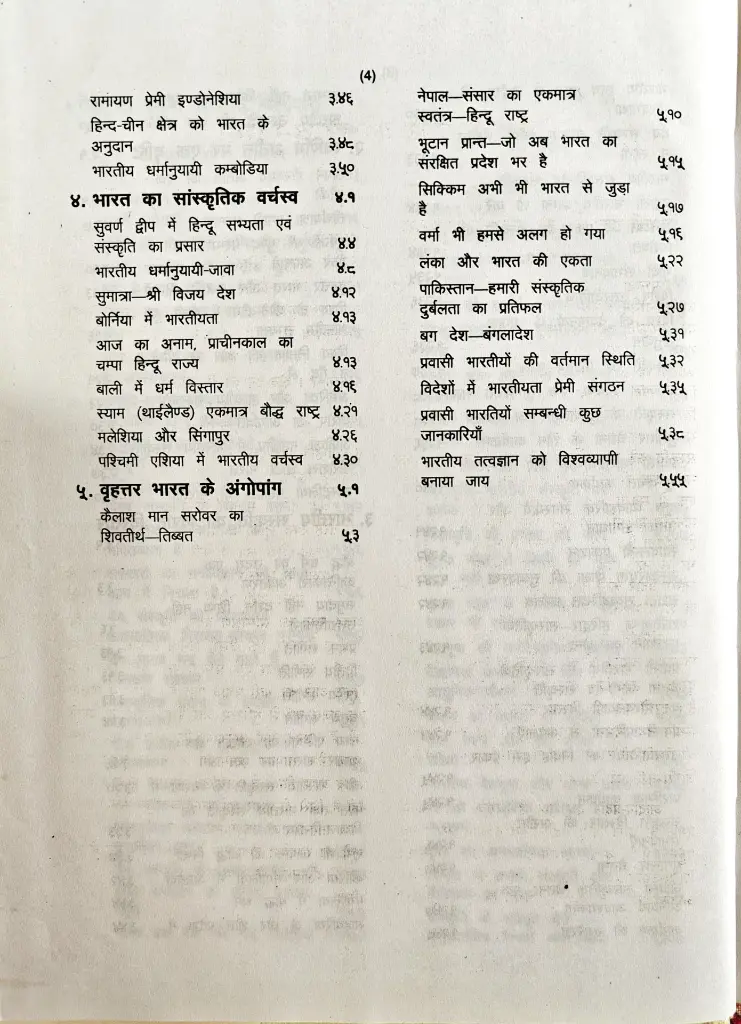 (4)
रामायण प्रेमी इण्डोनेशिया ३.४६
हिन्द-चीन क्षेत्र को भारत के
अनुदान ३.४८
भारतीय धर्मानुयायी कम्बोडिया ३.५०
४. भारत का सांस्कृतिक वर्चस्व ४.१
सुवर्ण द्वीप में हिन्दू सभ्यता एवं
संस्कृति का प्रसार ४.४
भारतीय धर्मानुयायी-जावा ४.८
सुमात्रा—श्री विजय देश ४.१२
बोर्निया में भारतीयता ४.१३
आज का अनाम, प्राचीनकाल का
चम्पा हिन्दू राज्य ४.१३
बाली में धर्म विस्तार ४.१६
स्याम (थाईलैण्ड) एकमात्र बौद्ध राष्ट्र ४.२१
मलेशिया और सिंगापुर ४.२६
पश्चिमी एशिया में भारतीय वर्चस्व ४.३०
५. वृहत्तर भारत के अंगोपांग ५.१
कैलाश मान सरोवर का
शिवतीर्थ—तिब्बत ५.३
नेपाल—संसार का एकमात्र
स्वतंत्र—हिन्दू राष्ट्र ५.१०
भूटान प्रान्त—जो अब भारत का
संरक्षित प्रदेश भर है ५.१५
सिक्किम अभी भी भारत से जुड़ा
है ५.१७
वर्मा भी हमसे अलग हो गया ५.१६
लंका और भारत की एकता ५.२२
पाकिस्तान—हमारी संस्कृतिक
दुर्बलता का प्रतिफल ५.२७
बग देश—बंगलादेश ५.३१
प्रवासी भारतीयों की वर्तमान स्थिति ५.३२
विदेशों में भारतीयता प्रेमी संगठन ५.३५
प्रवासी भारतियों सम्बन्धी कुछ
जानकारियाँ ५.३८
भारतीय तत्वज्ञान को विश्वव्यापी
बनाया जाय ५.५५